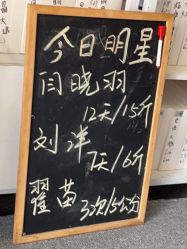 今日明星
闫晓羽
12天/15斤
刘洋
7天/6斤
翟苗
3次/5公分